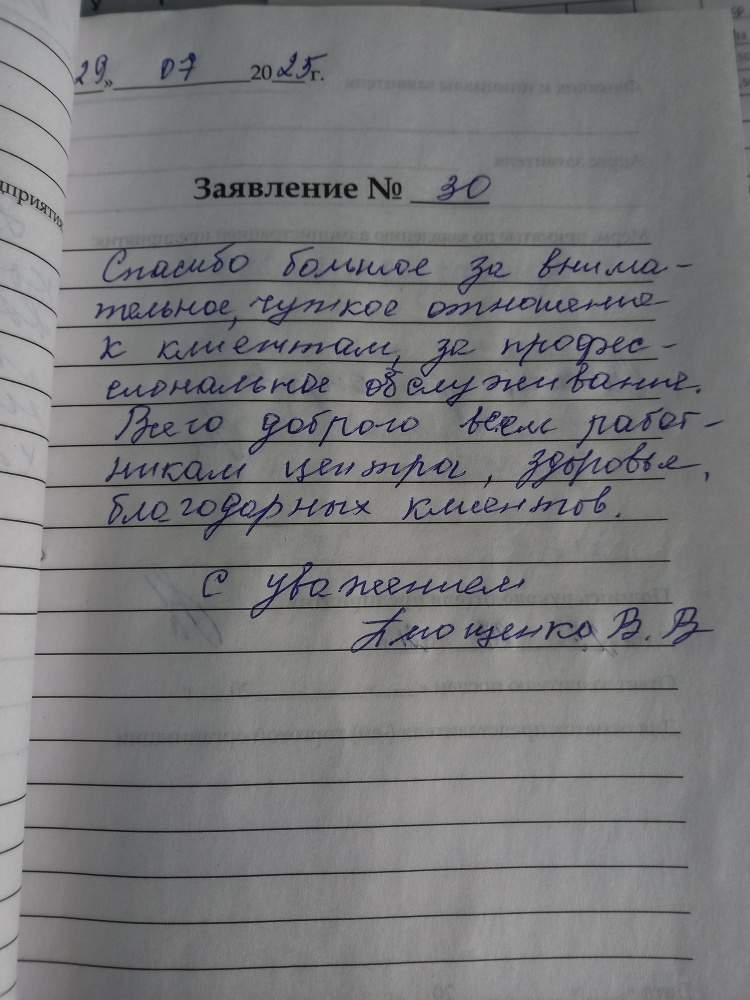 29» 07 2025г.
дприятия
Заявление № 30
Спасибо большое за внима-
тельное, чуткое отношение
к клиентам, за профес-
сиональное обслуживание.
Всего доброго всем работ-
никам центра, здоровья,
благодарных клиентов.
С уважением
В. В